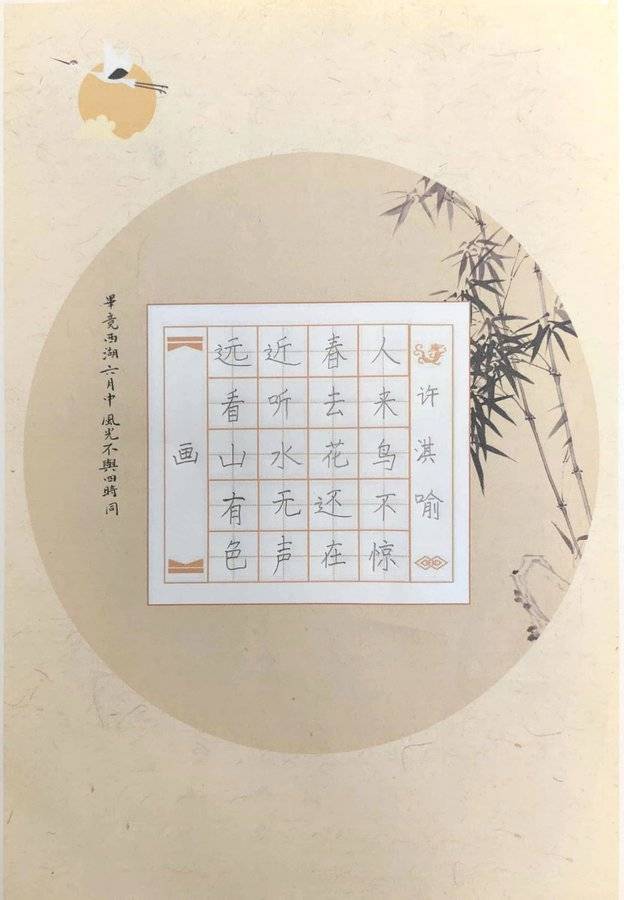 畢竟西湖六月中 風光不與四時同
画
远看山有色
近听水无声
春去花还在
人来鸟不惊
许淇喻